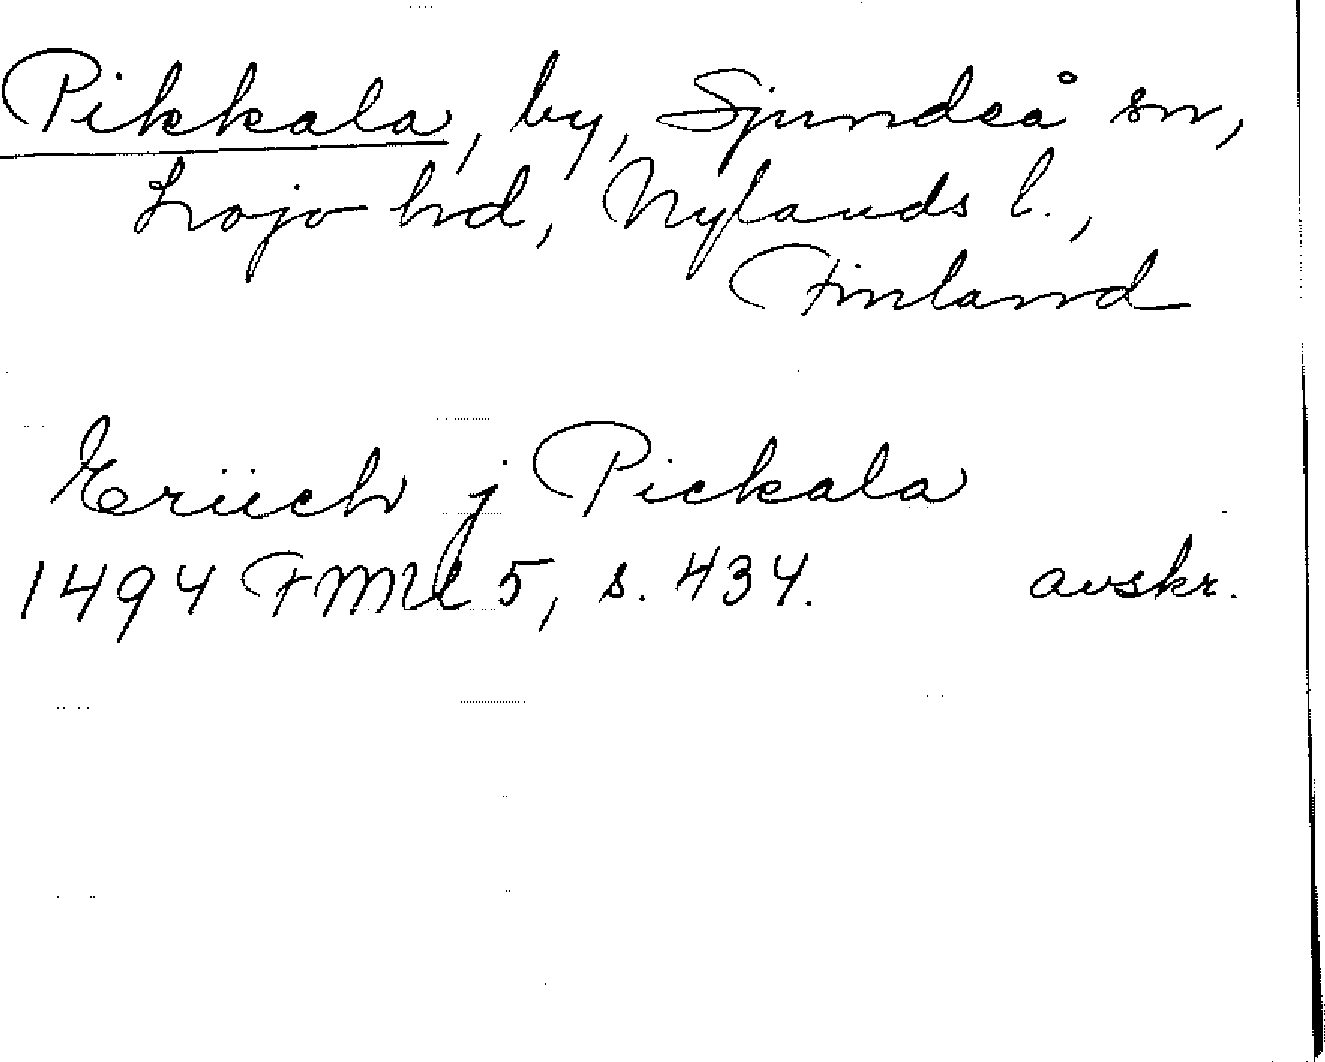 Pikkala, by, Sjundeå sn,
Lojo hd, Nylands l.,
Finland
Eriich j Pickala
1494 FMU 5, s. 434. avskr.